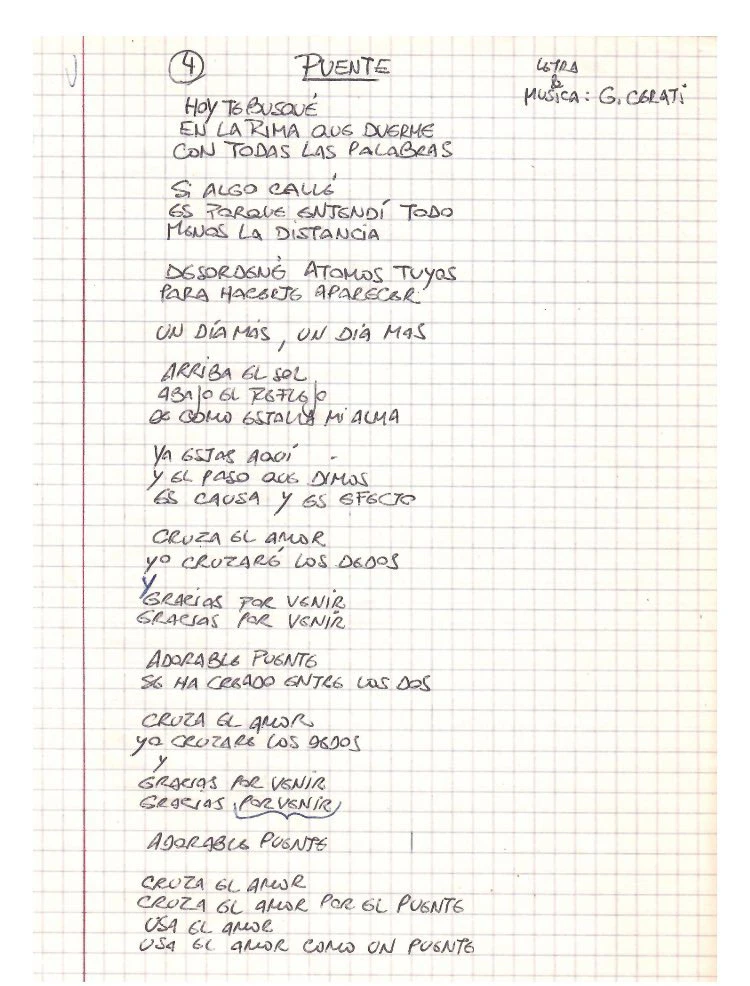 4 PUENTE
LETRA
&
MUSICA: G. CERATI
HOY TE BUSQUÉ
EN LA RIMA QUE DUERME
CON TODAS LAS PALABRAS
SI ALGO CALLÉ
ES PORQUE ENTENDÍ TODO
MENOS LA DISTANCIA
DESORDENÉ ATOMOS TUYOS
PARA HACERTE APARECER
UN DÍA MÁS, UN DÍA MAS
ARRIBA EL SOL
ABAJO EL REFLEJO
DE COMO ESTALLA MI ALMA
YA ESTAS AQUÍ
Y EL PASO QUE DIMOS
ES CAUSA Y ES EFECTO
CRUZA EL AMOR
YO CRUZARÉ LOS DEDOS
Y
GRACIAS POR VENIR
GRACIAS POR VENIR
ADORABLE PUENTE
SE HA CREADO ENTRE LOS DOS
CRUZA EL AMOR
YO CRUZARÉ LOS DEDOS
Y
GRACIAS POR VENIR
GRACIAS PORVENIR
ADORABLE PUENTE
CRUZA EL AMOR
CRUZA EL AMOR POR EL PUENTE
USA EL AMOR
USA EL AMOR COMO UN PUENTE